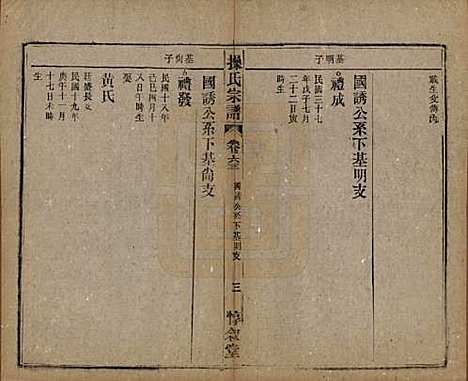 戴生女傳芮
國誘公系下基明支
基明子
禮成
民國三十七
年戊子七月
二十二日寅
時生
操氏宗譜
卷六三
國誘公系下基明支
三
惇敘堂
國誘公系下基尙支
基尙子
禮發
民國十八年
己巳四月十
八日午時生
娶
黃氏
汪盛長女
民國十九年
庚午十一月
十七日未時
生